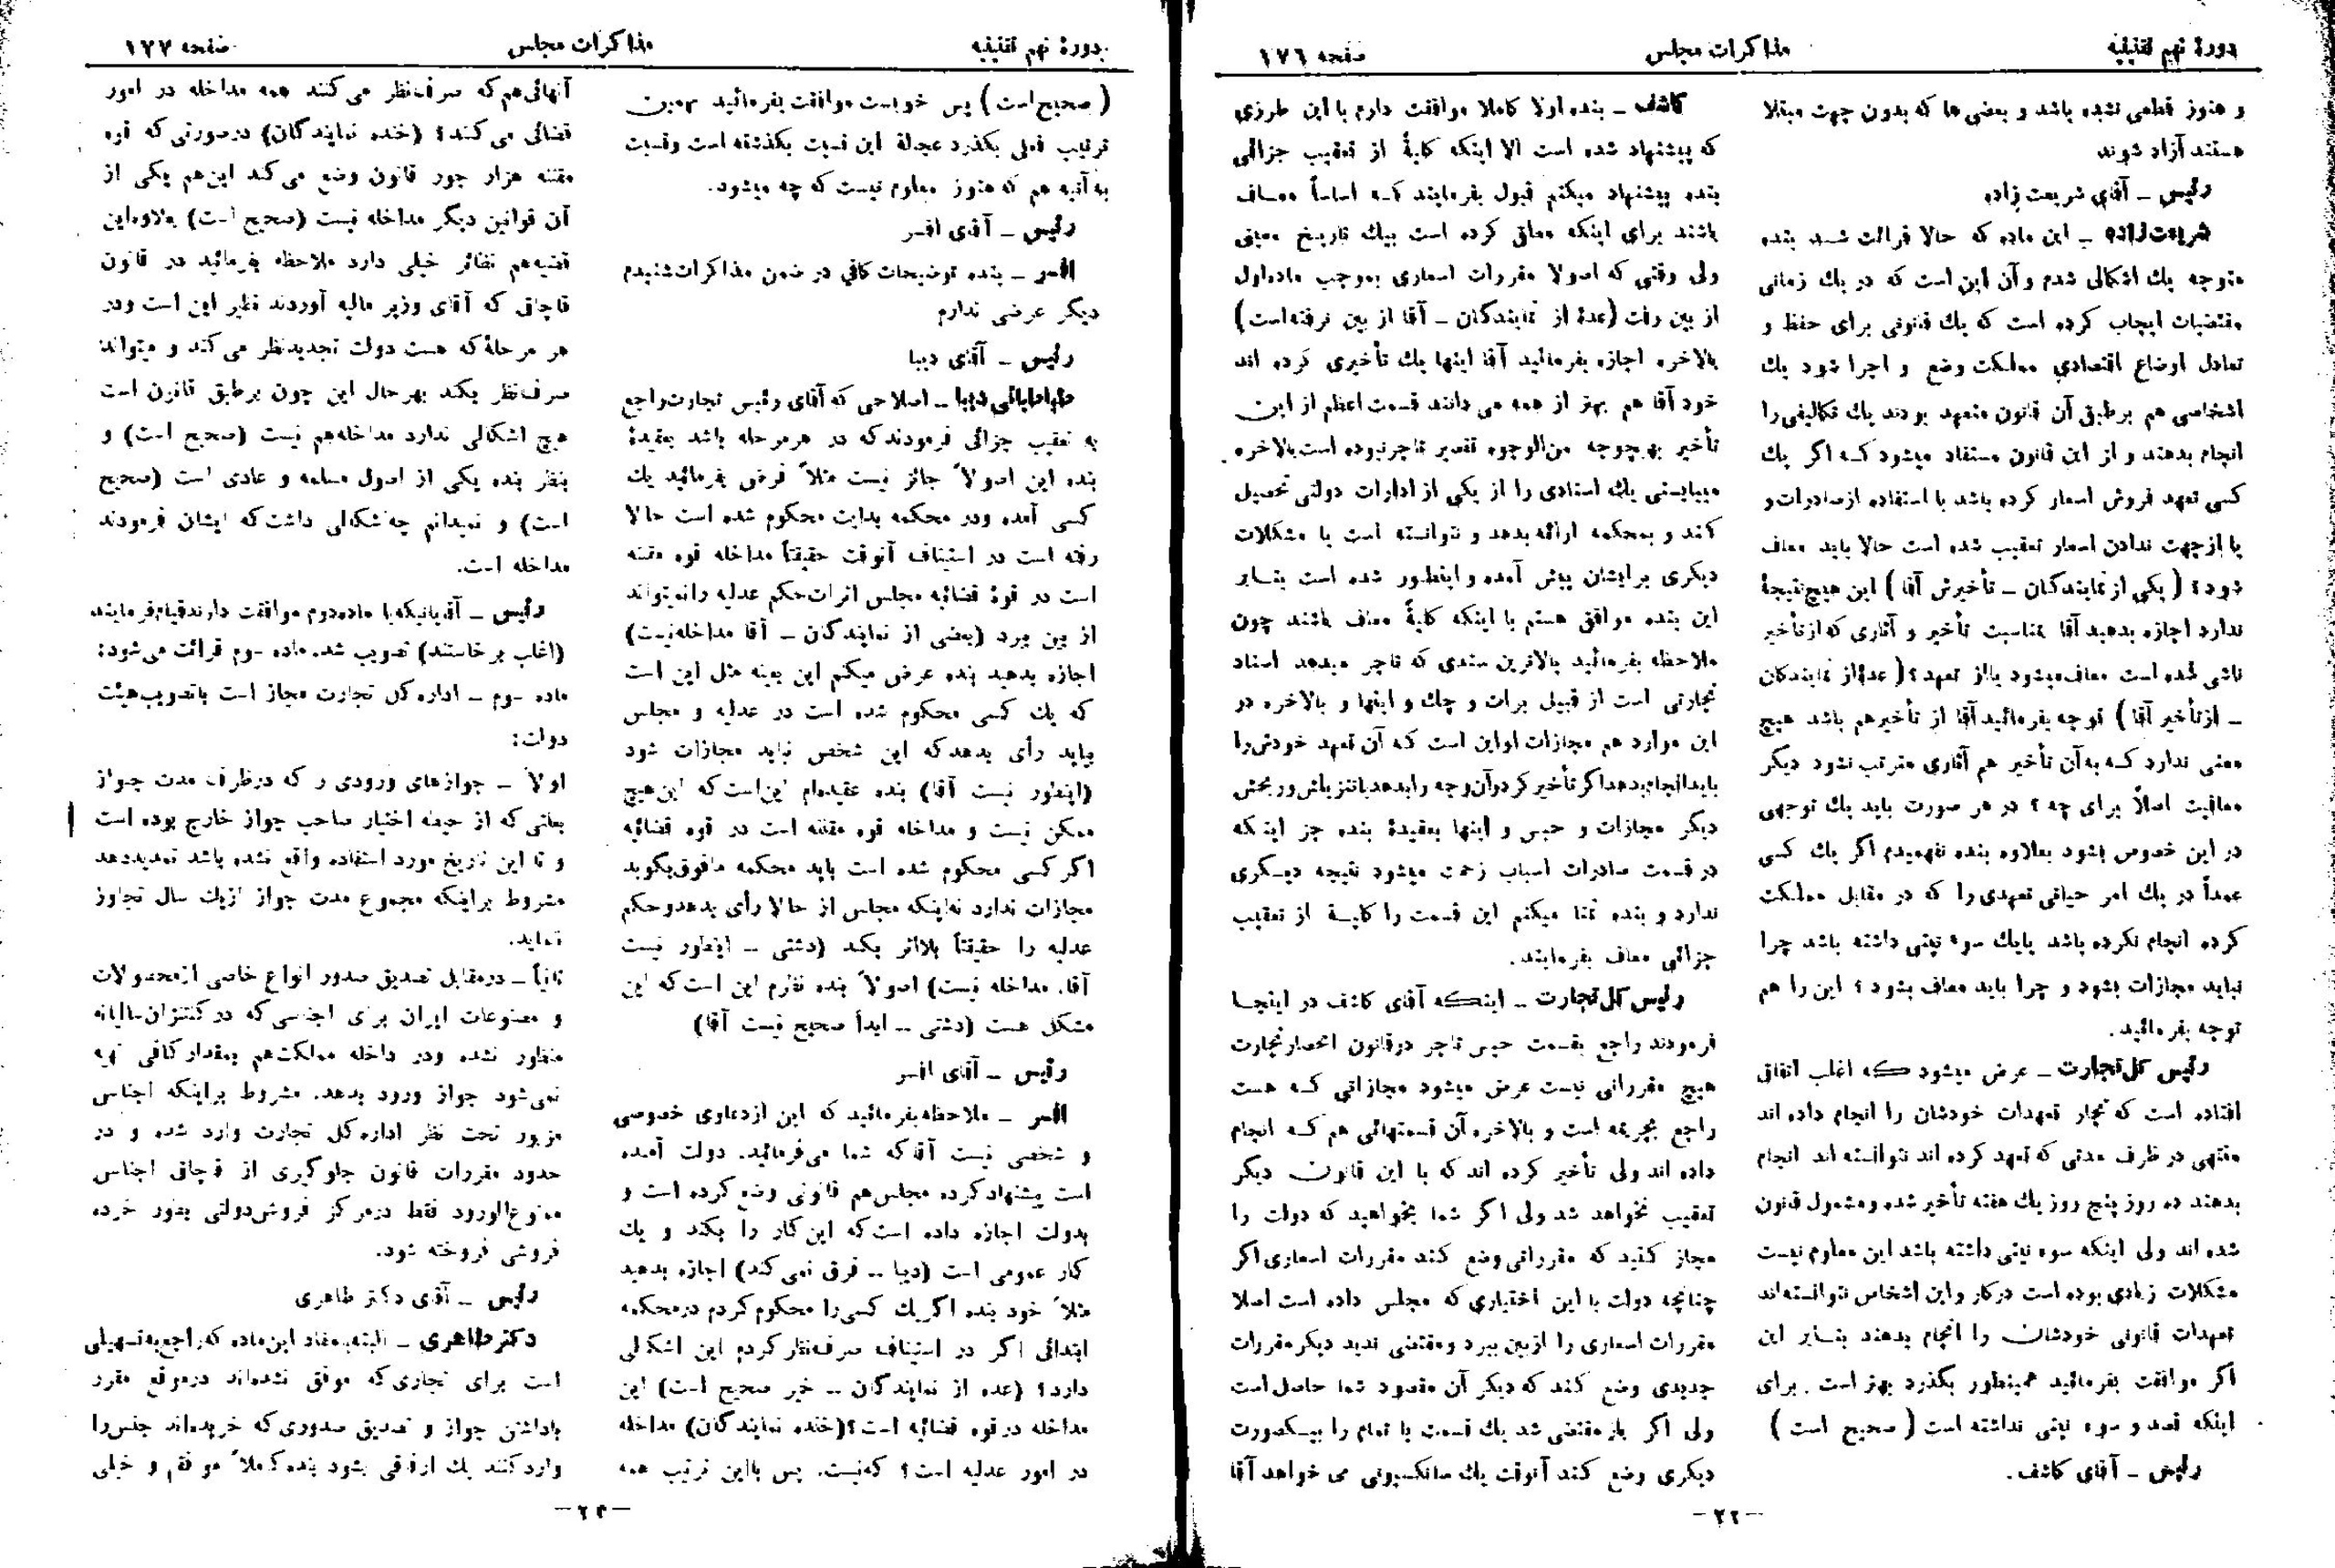 دورهٔ نهم تقنینیه
مذاکرات مجلس
صفحه ۱۷۶
و هنوز قطعی نشده باشد و بعضی ها که بدون جهت مبتلا
هستند آزاد شوند
رئیس ـ آقای شریعت زاده
شریعت زاده ـ این ماده که حالا قرائت شد بنده
متوجه یك اشکالی شدم و آن این است که در یك زمانی
مقتضیات ایجاب کرده است که یك قانونی برای حفظ و
تعادل اوضاع اقتصادی مملکت وضع و اجرا شود یك
اشخاصی هم برطبق آن قانون متعهد بودند یك تکالیفی را
انجام بدهند و از این قانون مستفاد میشود که اگر یك
کسی تعهد فروش اسعار کرده باشد با استفاده از صادرات و
یا از جهت ندادن اسعار تعقیب شده است حالا باید معاف
شود؟ (یکی از نمایندگان ـ تأخیرش آقا) این هیچ نتیجهٔ
ندارد اجازه بدهید آقا بمناسبت تأخیر و آثاری که از تأخیر
ناشی شده است معاف میشود یا از تعهد؟ (عدهٔ از نمایندگان
ـ از تأخیر آقا) توجه بفرمائید آقا از تأخیر هم باشد هیچ
معنی ندارد که به آن تأخیر هم آثاری مترتب نشود دیگر
معافیت اصلاً برای چه؟ در هر صورت باید یك توجهی
در این خصوص بشود بعلاوه بنده نفهمیدم اگر یك کسی
عمداً در یك امر حیاتی تعهدی را که در مقابل مملکت
کرده انجام نکرده باشد یا یك سوء نیتی داشته باشد چرا
نباید مجازات بشود و چرا باید معاف بشود؟ این را هم
توجه بفرمائید.
رئیس کل تجارت ـ عرض میشود که اغلب اتفاق
افتاده است که تجار تعهدات خودشان را انجام داده اند
منتهی در ظرف مدتی که تعهد کرده اند نتوانسته اند انجام
بدهند ده روز پنج روز یك هفته تأخیر شده و مشمول قانون
شده اند ولی اینکه سوء نیتی داشته باشد این معلوم نیست
مشکلات زیادی بوده است در کار و این اشخاص نتوانسته اند
تعهدات قانونی خودشان را انجام بدهند بنابر این
اگر موافقت بفرمائید همینطور بگذرد بهتر است. برای
اینکه قصد و سوء نیتی نداشته است (صحیح است)
رئیس ـ آقای کاشف.
کاشف ـ بنده اولا کاملا موافقت دارم با این طرزی
که پیشنهاد شده است الا اینکه کلیهٔ از تعقیب جزائی
بنده پیشنهاد میکنم قبول بفرمایند که اساساً معاف
باشند برای اینکه معلق کرده است بیك تاریخ معینی
ولی وقتی که اصولا مقررات اسعاری بموجب ماده اول
از بین رفت (عدهٔ از نمایندگان ـ آقا از بین نرفته است)
بالاخره اجازه بفرمائید آقا اینها یك تأخیری کرده اند
خود آقا هم بهتر از همه می دانند قسمت اعظم از این
تأخیر بهیچوجه من الوجوه تقصیر تاجر نبوده است بالاخره
میبایستی یك اسنادی را از یکی از ادارات دولتی تحصیل
کند و بمحکمه ارائه بدهد و نتوانسته است یا مشکلات
دیگری برایشان پیش آمده و اینطور شده است بنابر
این بنده موافق هستم با اینکه کلیهٔ معاف باشند چون
ملاحظه بفرمائید بالاترین سندی که تاجر میدهد اسناد
تجارتی است از قبیل برات و چك و اینها و بالاخره در
این موارد هم مجازات او این است که آن تعهد خودش را
باید انجام بدهد اگر تأخیر کرد و آن وجه را بدهد با تنزیلش و ربحش
دیگر مجازات و حبس و اینها بعقیدهٔ بنده جز اینکه
در قسمت صادرات اسباب زحمت میشود نتیجه دیگری
ندارد و بنده تمنا میکنم این قسمت را کلیة از تعقیب
جزائی معاف بفرمایند.
رئیس کل تجارت ـ اینکه آقای کاشف در اینجا
فرمودند راجع بقسمت حبس تاجر در قانون انحصار تجارت
هیچ مقرراتی نیست عرض میشود مجازاتی که هست
راجع بجریمه است و بالاخره آن قسمتهائی هم که انجام
داده اند ولی تأخیر کرده اند که با این قانون دیگر
تعقیب نخواهد شد ولی اگر شما بخواهید که دولت را
مجاز کنید که مقرراتی وضع کند مقررات اسعاری اگر
چنانچه دولت با این اختیاری که مجلس داده است اصلا
مقررات اسعاری را از بین ببرد و مقتضی ندید دیگر مقررات
جدیدی وضع کند که دیگر آن مقصود شما حاصل است
ولی اگر باز مقتضی شد یك قسمت یا تمام را بیکصورت
دیگری وضع کند آنوقت یك سانکسیونی می خواهد آقا
ـ ۲۲ ـ
دورهٔ نهم تقنینیه
مذاکرات مجلس
صفحه ۱۷۷
(صحیح است) پس خوبست موافقت بفرمائید بهمین
ترتیب فعلی بگذرد عجالة این نسبت بگذشته است و نسبت
به آتیه هم که هنوز معلوم نیست که چه میشود.
رئیس ـ آقای افسر
افسر ـ بنده توضیحات کافی در ضمن مذاکرات شنیدم
دیگر عرضی ندارم
رئیس ـ آقای دیبا
طباطبائی دیبا ـ اصلاحی که آقای رئیس تجارت راجع
به تعقیب جزائی فرمودند که در هر مرحله باشد بعقیدهٔ
بنده این اصولاً جائز نیست مثلاً فرض بفرمائید یك
کسی آمده و در محکمه بدایت محکوم شده است حالا
رفته است در استیناف آنوقت حقیقتاً مداخله قوه مقننه
است در قوهٔ قضائیه مجلس اثرات حکم عدلیه را نمیتواند
از بین ببرد (بعضی از نمایندگان ـ آقا مداخله نیست)
اجازه بدهید بنده عرض میکنم این بعینه مثل این است
که یك کسی محکوم شده است در عدلیه و مجلس
بیاید رأی بدهد که این شخص نباید مجازات شود
(اینطور نیست آقا) بنده عقیده ام این است که این هیچ
ممکن نیست و مداخله قوه مقننه است در قوه قضائیه
اگر کسی محکوم شده است باید محکمه مافوق بگوید
مجازات ندارد نه اینکه مجلس از حالا رأی بدهد و حکم
عدلیه را حقیقتاً بلااثر بکند (دشتی ـ اینطور نیست
آقا. مداخله نیست) اصولاً بنده نظرم این است که این
مشکل هست (دشتی ـ ابداً صحیح نیست آقا)
رئیس ـ آقای افسر
افسر ـ ملاحظه بفرمائید که این از دعاوی خصوصی
و شخصی نیست آقا که شما می فرمائید. دولت آمده
است پیشنهاد کرده مجلس هم قانونی وضع کرده است و
بدولت اجازه داده است که این کار را بکند و یك
کار عمومی است (دیبا ـ فرق نمی کند) اجازه بدهید
مثلاً خود بنده اگر یك کسی را محکوم کردم در محکمه
ابتدائی اگر در استیناف صرف نظر کردم این اشکالی
دارد؟ (عده از نمایندگان ـ خیر صحیح است) این
مداخله در قوه قضائیه است؟ (خنده نمایندگان) مداخله
در امور عدلیه است؟ که نیست. پس با این ترتیب همه
آنهائی هم که صرف نظر می کنند همه مداخله در امور
قضائی می کنند؟ (خنده نمایندگان) در صورتی که قوه
مقننه هزار جور قانون وضع می کند این هم یکی از
آن قوانین دیگر مداخله نیست (صحیح است) بعلاوه این
قضیه هم نظائر خیلی دارد ملاحظه بفرمائید در قانون
قاچاق که آقای وزیر مالیه آوردند نظیر این است و در
هر مرحلهٔ که هست دولت تجدیدنظر می کند و میتواند
صرف نظر بکند بهر حال این چون برطبق قانون است
هیچ اشکالی ندارد مداخله هم نیست (صحیح است) و
بنظر بنده یکی از اصول مسلمه و عادی است (صحیح
است) و نمیدانم چه اشکالی داشت که ایشان فرمودند
مداخله است.
رئیس ـ آقایانیکه با ماده دوم موافقت دارند قیام فرمایند
(اغلب برخاستند) تصویب شد. ماده سوم قرائت می شود:
ماده سوم ـ اداره کل تجارت مجاز است با تصویب هیئت
دولت:
اولا ـ جوازهای ورودی را که در ظرف مدت جواز
بعللی که از حیطه اختیار صاحب جواز خارج بوده است
و تا این تاریخ مورد استفاده واقع نشده باشد تمدید دهد
مشروط بر اینکه مجموع مدت جواز از یك سال تجاوز
ننماید.
ثانیاً ـ در مقابل تصدیق صدور انواع خاصی از محصولات
و مصنوعات ایران برای اجناسی که در کنتنژان سالیانه
منظور نشده و در داخله مملکت هم بمقدار کافی تهیه
نمی شود جواز ورود بدهد. مشروط بر اینکه اجناس
مزبور تحت نظر اداره کل تجارت وارد شده و در
حدود مقررات قانون جلوگیری از قاچاق اجناس
ممنوع الورود فقط در مرکز فروش دولتی بطور خرده
فروشی فروخته شود.
رئیس ـ آقای دکتر طاهری
دکتر طاهری ـ البته مفاد این ماده که راجع به تسهیلی
است برای تجاری که موفق نشده اند در موقع مقرر
باداشتن جواز و تصدیق صدوری که خریده اند جنس را
وارد کنند یك ارفاقی بشود بنده کاملاً موافقم و خیلی
ـ ۲۳ ـ